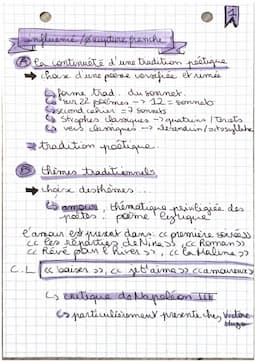 influence / écriture franche
A La continuité d'une tradition poétique
➡ choix d'une poème versifiée et rimée
↳ forme trad. du sonnet.
↳ sur 22 poèmes -> 12 = sonnets
↳ second cahier = 7 sonnets
↳ strophes classiques -> quatrains / tercets
↳ vers classiques -> alexandrin / octosyllabe
➡ tradition poétique.
B thèmes traditionnels
➡ choix des thèmes...
↳ amour, thématique privilégiée des
poètes, poème lyrique
l'amour est présent dans : << première soirée >>
<< les réparties de Nina >>, << Roman >>
<< Rêvé pour l'hiver >>, << la Maline >>
C.L << baiser >>, << je t'aime >> << amoureux >>
↳ critique de Napoléon III
↳ particulièrement présente chez Victor
Hugo